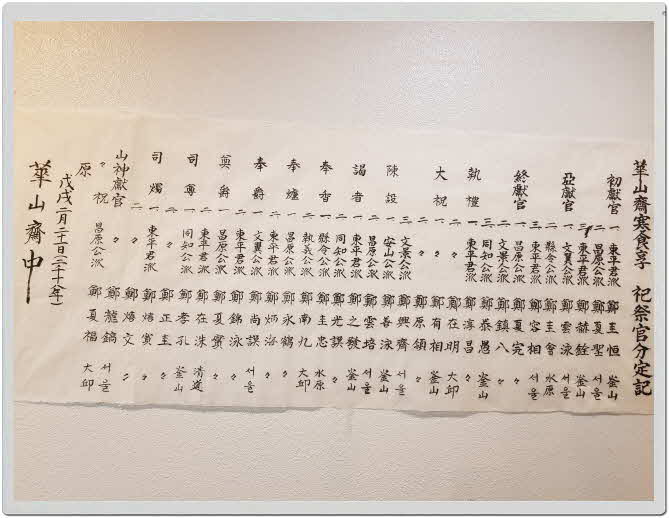 華山齋寒食享 祀祭官分定記
初獻官 一 東平君派 鄭圭恒 釜山
二 昌原公派 鄭夏聖 서울
三 東平君派 鄭赫銓 釜山
亞獻官 一 文翼公派 鄭雲泳 서울
二 縣令公派 鄭圭會 水原
三 東平君派 鄭容相 서울
終獻官 一 昌原公派 鄭夏完 〃
二 文景公派 鄭鎮八 〃
三 同知公派 鄭泰愚 釜山
執禮 一 東平君派 鄭淳昌 〃
大祝 一 〃 鄭在明 大邱
二 〃 鄭有相 釜山
〃 鄭原領 〃
陳設 三 文景公派 鄭興齊 서울
二 安山公派 鄭善泳 釜山
昌原公派 鄭雲培 서울
謁者 一 東平君派 鄭之發 釜山
二 同知公派 鄭光謨 〃
奉香 一 縣令公派 鄭圭忠 水原
二 執義公派 鄭南九 大邱
奉爐 一 昌原公派 鄭永鶴 〃
二 東平君派 鄭炳浩 〃
奉爵 一 文翼公派 鄭尚謨 서울
二 東平君派 鄭錦泳 〃
奠爵 一 昌原公派 鄭夏寶 〃
二 東平君派 鄭在洙 清道
司尊 一 同知公派 鄭孝孔 釜山
二 〃 鄭正圭 〃
司燭 一 東平君派 鄭煒寬 〃
二 〃 鄭煒文 〃
山神獻官 昌原公派 鄭龍鎬 서울
〃 祝 鄭夏福 大邱
原
戊戌二月二十日(二千十八年)
華山齋中